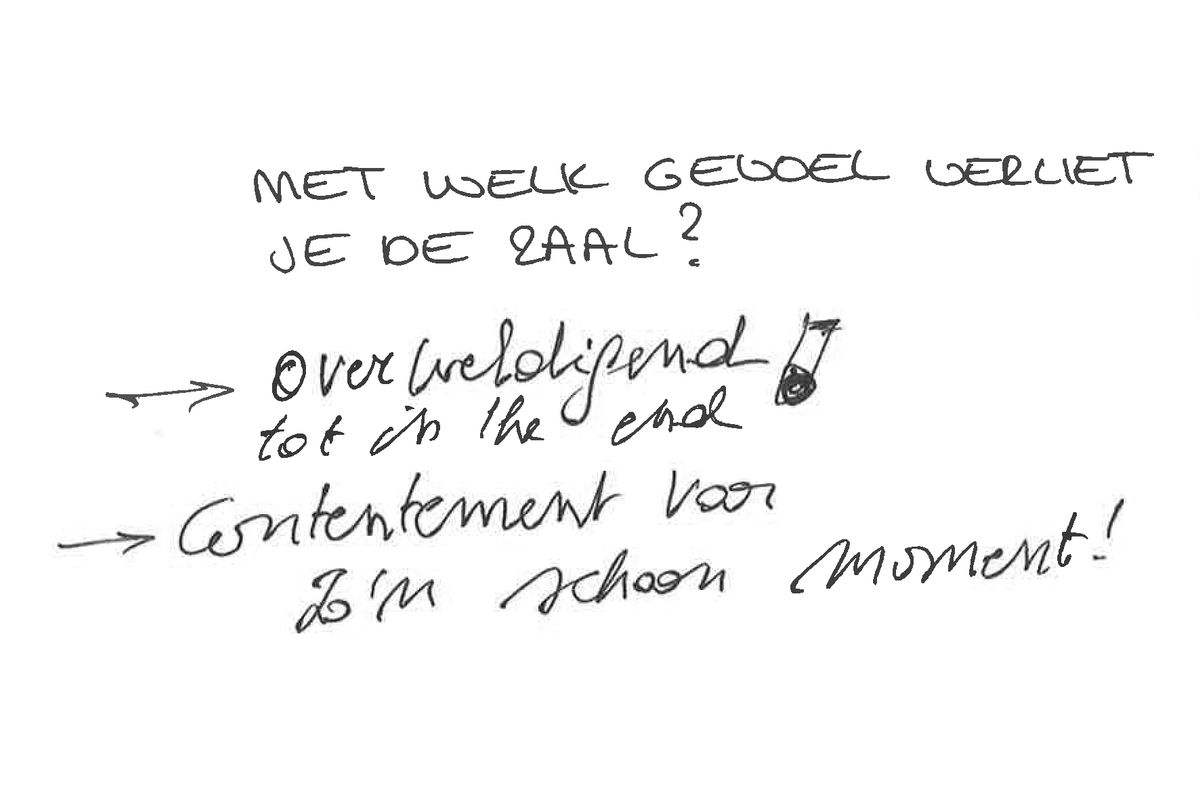 MET WELK GEVOEL VERLIET
JE DE ZAAL?
→ Overweldigend!
tot in the end
→ Contentement voor
zo'n schoon moment!